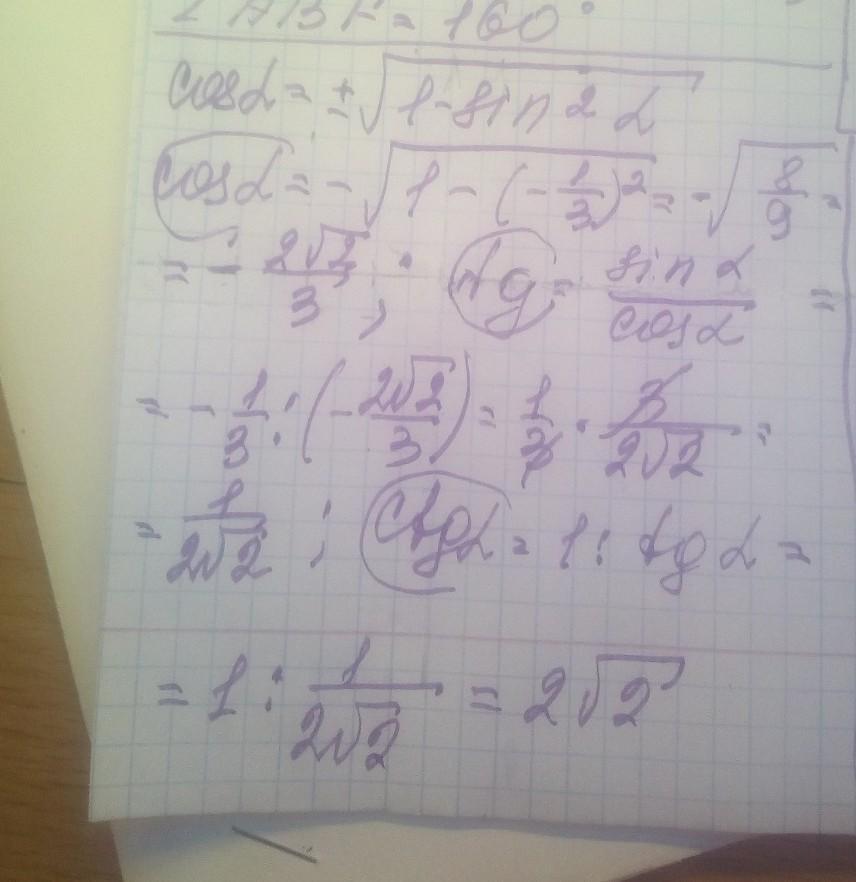 ∠ABF = 160°
cosα = ±√(1-sin²α)
cosα = -√(1-(-1/3)²) = -√(8/9) =
= - 2√2/3; tg = sinα/cosα =
= - 1/3 : (- 2√2/3) = 1/3 · 3/2√2 =
= 1/2√2 ; ctgα = 1 : tgα =
= 1 : 1/2√2 = 2√2